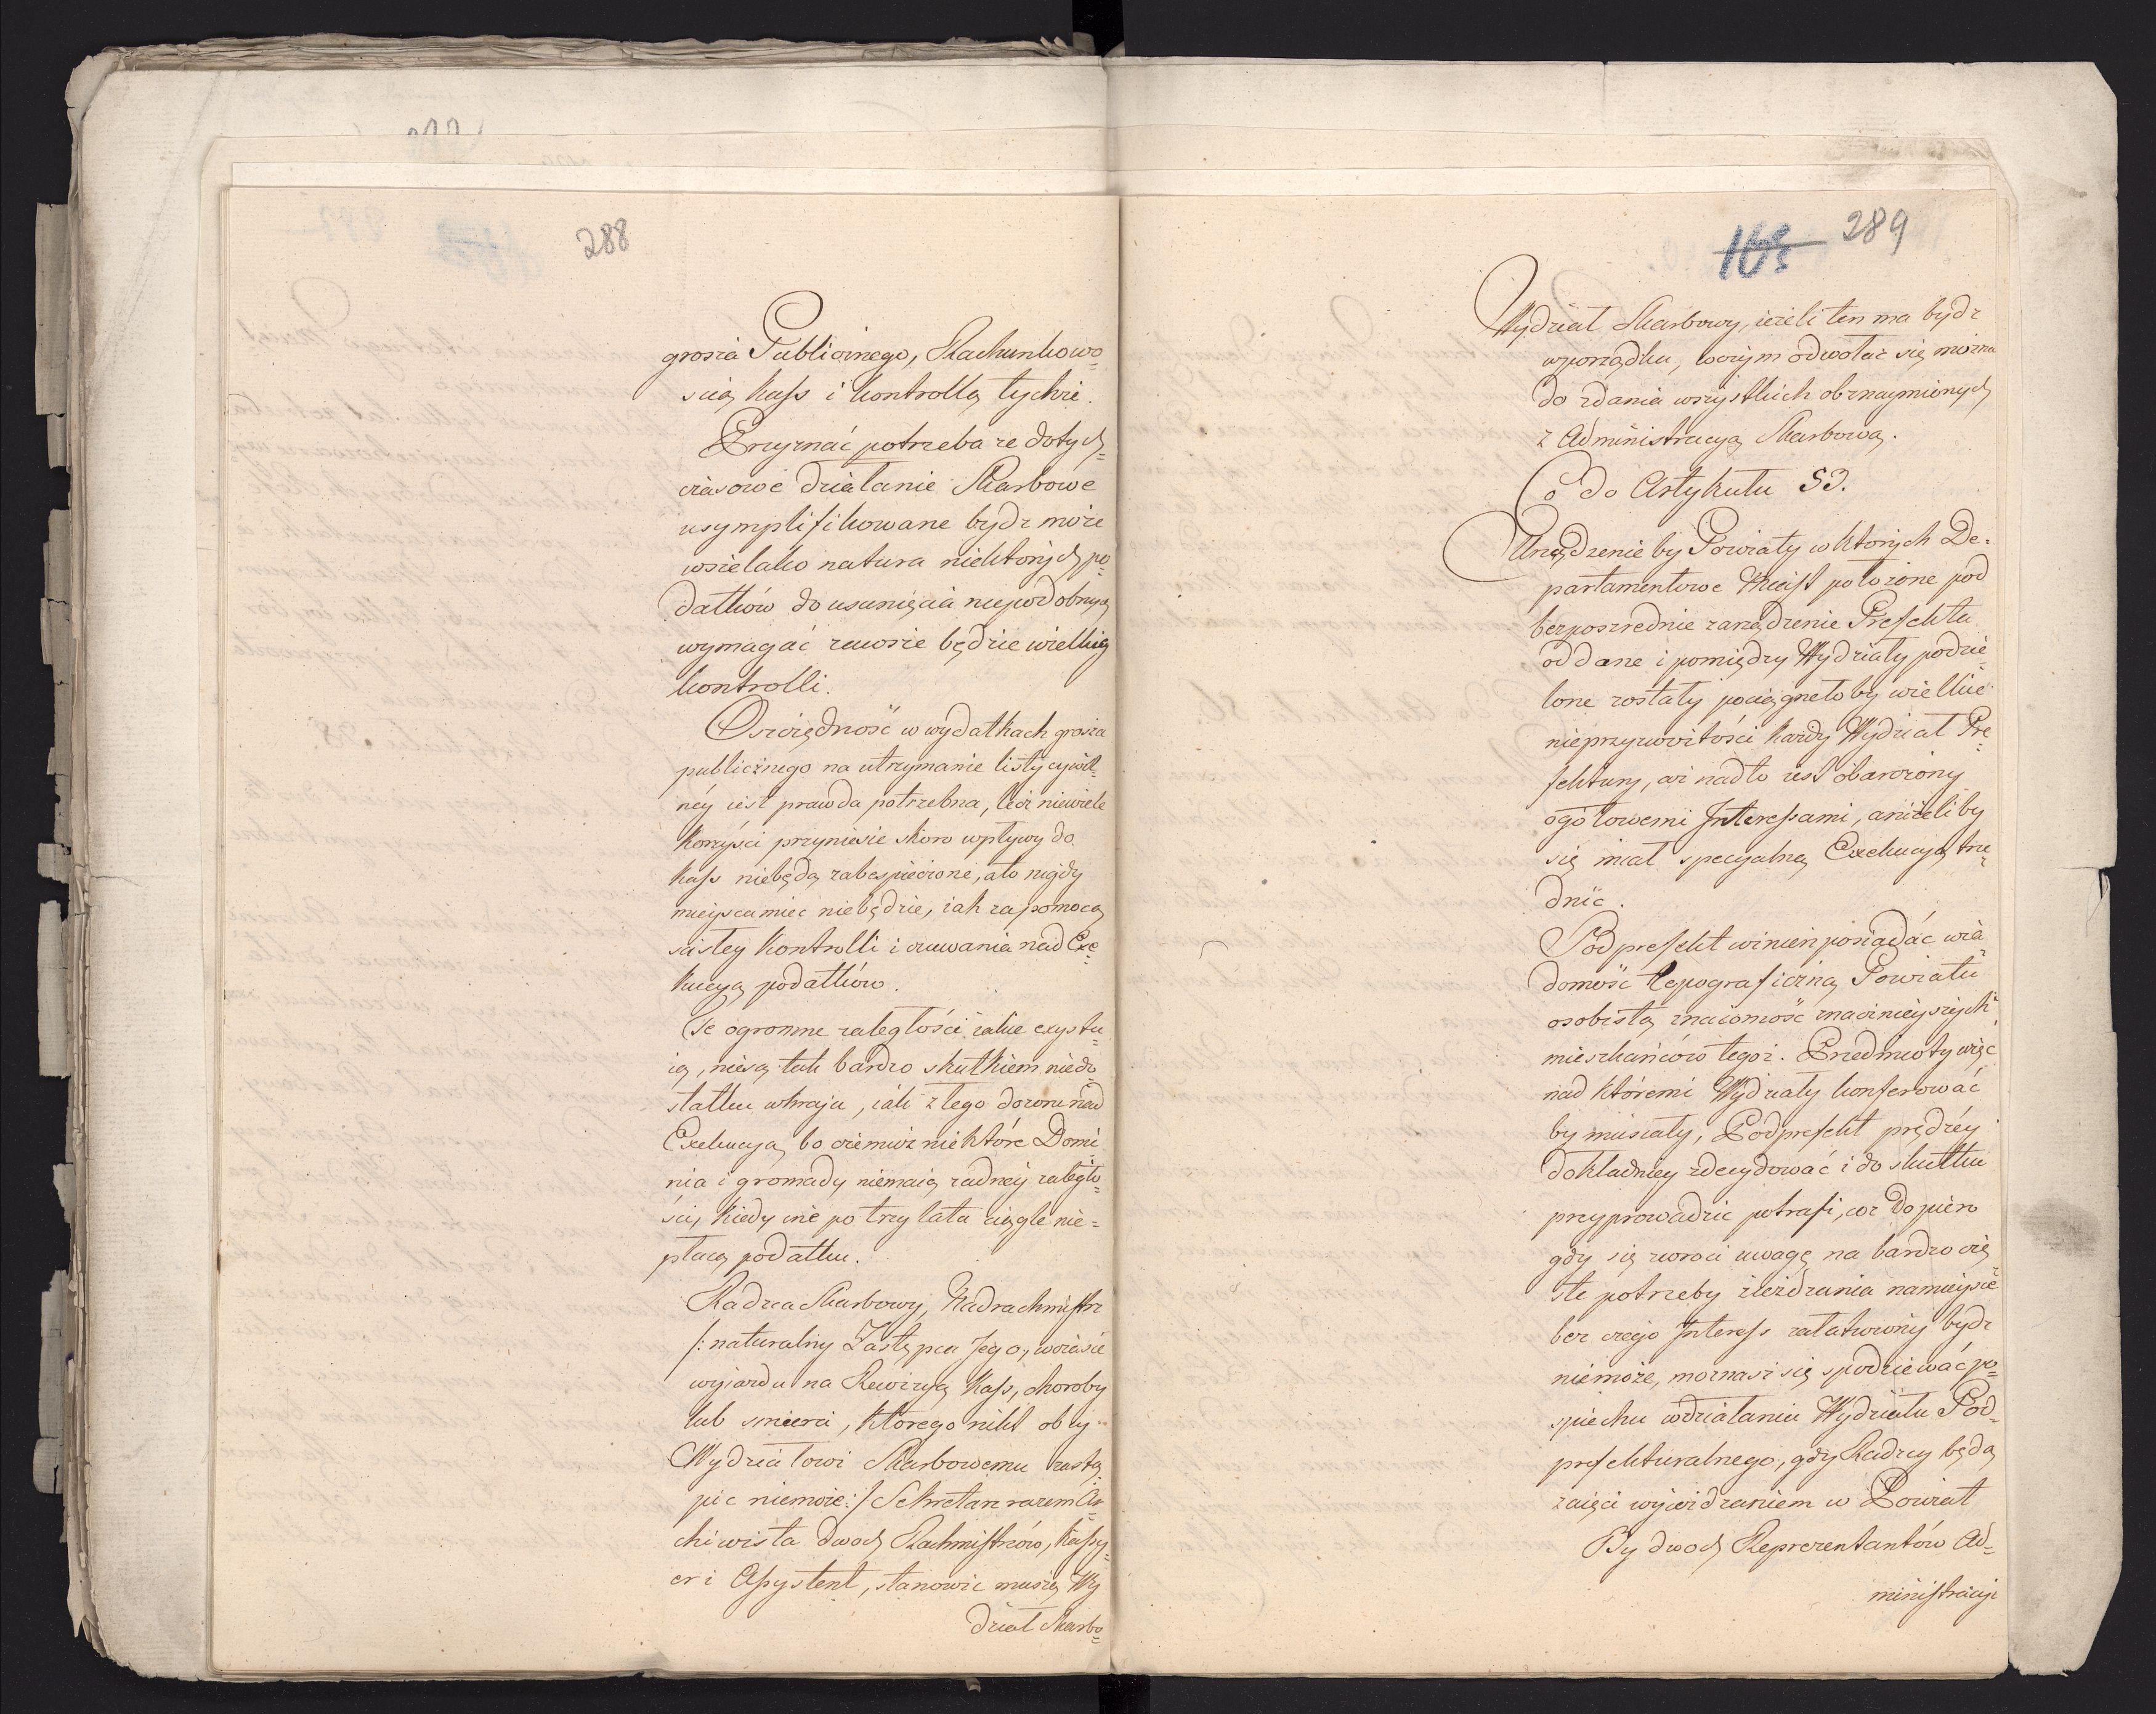 288
grosza Publicznego, Rachunkowo=
scią kass i kontrollą tychże.
Przyznać potrzeba że dotych=
czasowe działanie Skarbowe
usymplifikowane bydz może
wszelako natura niektorych po=
datków do usunięcia niepodobnych
wymagać zawsze będzie wielkiey
kontrolli.
Oszczędność w wydatkach grosza
publicznego na utrzymanie listy cywil=
néy iest prawda potrzebna, lecz niewiele
korzyści przyniesie skoro wpływy do
kass niebędą zabespieczone, a to nigdy
mieysca mieć niebędzie, iak za pomocą
scisłey kontrolli i czuwania nad Exe=
kucyą podatków.
Te ogromne zaległości iakie exystu=
ią, niesą tak bardzo skutkiem niedo
statku w kraju, iak złego dozoru nad
Exekucyą, bo czemuż niektóre Domi
nia i gromady niemaią żadney zaległo=
ści, kiedy inne po trzy lata ciągle nie=
płacą podatku.
Radzca Skarbowy, Nadrachmistrz
/: naturalny Zastępca Jego, w czasie
wyiazdu na Rewizyą kass, choroby
lub smierci, którego nikt obcy
Wydziałowi Skarbowemu zastą=
pić niemoże :/ Sekretarz razem Ar=
chiwista dwoch Rachmistrzów, Kassy=
er i Assystent, stanowic muszą Wy
dział Skarbo=
289
Wydział Skarbowy, ieżeli ten ma bydz
w porządku, w czym odwołać się można
do zdania wszystkich obznaymionych
z Administracyą Skarbową.
Co do Artykułu 53.
Urządzenie by Powiaty w ktorych De=
partamentowe Miast położone pod
bezposzrednie zarządzenie Prefekta
oddane i pomiędzy Wydziały podzie=
lone zostały pociągnęłoby wielkie
nieprzyzwoitości każdy Wydział Pre=
fektury, aż nadto iest obarczony
ogółowemi Interessami, aniżeliby
się miał specyalną Exekucyą tru=
dnić.
Podprefekt winien posiadać wia=
domość topograficzną Powiatu
osobistą znaiomość znacznieyszych
mieszkańców tegoż. Przedmioty więc
nad któremi Wydziały konferować
by musiały, Podprefekt prędzéy
dokładniey zdecydować i do skutku
przyprowadzic potrafi, coż dopiero
gdy się zwroci uwagę na bardzo czę=
ste potrzeby zieżdzania na mieysce
bez czego Interess załatwiony bydz
niemoże, możnasz się spodziewać po=
spiechu w działaniu Wydziału Pod=
prefekturalnego, gdy Radzcy będą
zaięci wyieżdzaniem w Powiat
By dwoch Reprezentantów Ad=
ministracyi